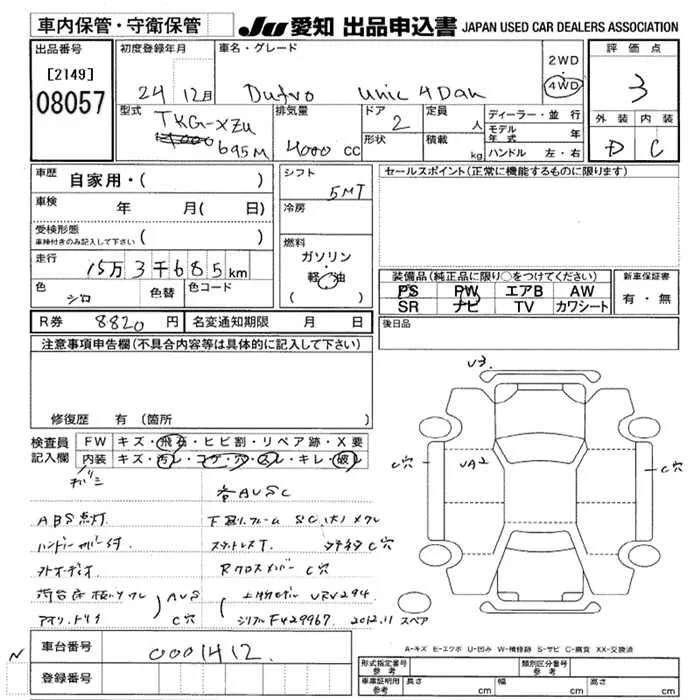 車内保管・守衛保管
JU 愛知 出品申込書 JAPAN USED CAR DEALERS ASSOCIATION
出品番号
[2149]
08057
初度登録年月
24 12月
車名・グレード
Dutro Unic 4Dan
2WD
・
4WD
評価点
3
外装 内装
D C
型式
TKG-XZU
695M
排気量
4000 cc
ドア
2
形状
定員
人
積載
kg
ディーラー・並行
モデル年式 年
ハンドル 左・右
車歴
自家用・( )
車検 年 月( 日)
受検形態
車検付きのみ記入して下さい ( )
走行 15万3千685km
色 シロ 色替 色コード
シフト
5MT
冷房
燃料
ガソリン
軽油
( )
セールスポイント(正常に機能するものに限ります)
装備品(純正品に限り○をつけてください)
PS PW エアB AW
SR ナビ TV カワシート
新車保証書
有・無
R券 8820円 名変通知期限 月 日
後日品
注意事項申告欄(不具合内容等は具体的に記入して下さい)
修復歴 有(箇所 )
検査員
記入欄
FW キズ・飛石・ヒビ割・リペア跡・X要
内装 キズ・汚レ・コゲ・穴・スレ・キレ・破レ
各AUSC
ABS点灯
下廻り.フレーム SC.(大)メクレ
C穴
Rクロスメンバー C穴
AUS
C穴
URV294
シリアルFY29967 2012.11
U3
UA2
C穴
C穴
スペア
A-キズ E-エクボ U-凹み W-補修跡 S-サビ C-腐食 XX-交換済
N
車台番号 0001412
登録番号
形式指定番号
参考
類別区分番号
参考
車庫証明用
参考
長さ cm 幅 cm 高さ cm